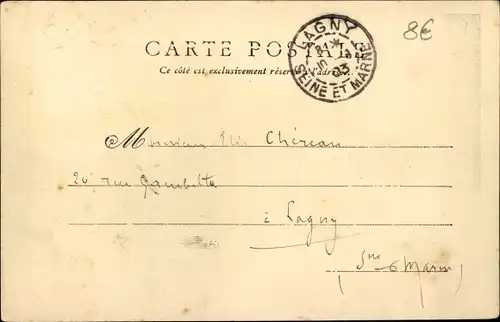 8€
LAGNY
SEINE ET MARNE
CARTE POSTALE
Ce côté est exclusivement réservé à l'adresse.
Monsieur Chéreau
20 rue Gambetta
à Lagny
(Sne & Marne)